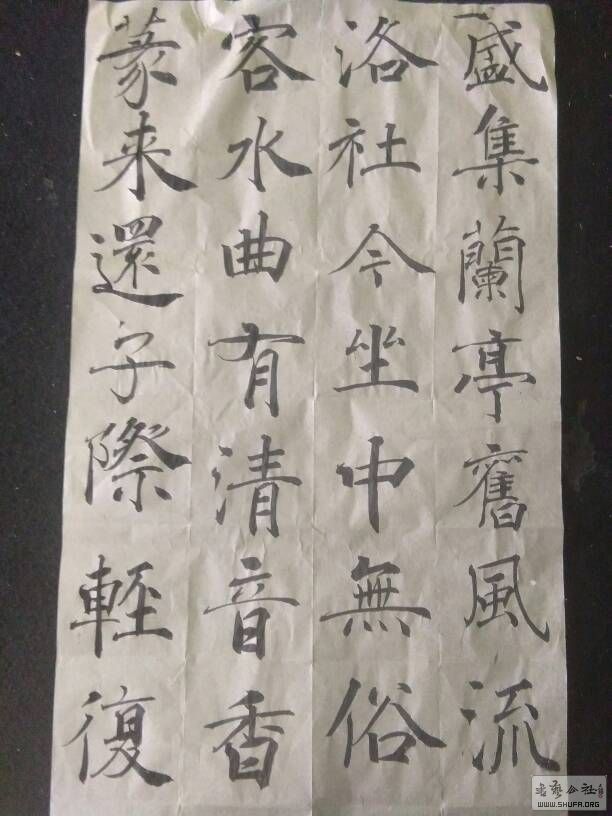 盛集蘭亭舊風流
洛社今坐中無俗
客水曲有清音香
篆来還子際輕復
书艺公社
WWW.SHUFA.ORG